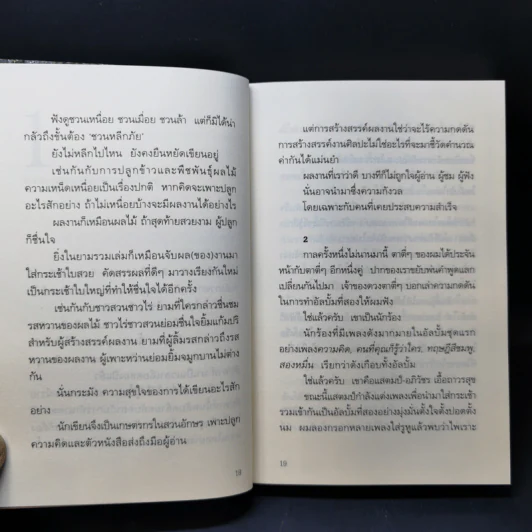 ฟังดูชวนเหนื่อย ชวนเมื่อย ชวนล้า แต่ก็มิได้น่า
กลัวถึงขั้นต้อง 'ชวนหลีกภัย'
ยังไม่หลีกไปไหน ยังคงยืนหยัดเขียนอยู่
เช่นกันกับการปลูกข้าวและพืชพันธุ์ผลไม้
ความเหน็ดเหนื่อยเป็นเรื่องปกติ หากคิดจะเพาะปลูก
อะไรสักอย่าง ถ้าไม่เหนื่อยบ้างจะมีผลงานได้อย่างไร
ผลงานก็เหมือนผลไม้ ถ้าสุกท้ายสวยงาม ผู้ปลูก
ก็ชื่นใจ
ยิ่งในยามรวมเล่มก็เหมือนจับผล(ของ)งานมา
ใส่กระเช้าใบสวย คัดสรรผลที่ดีๆ มาวางเรียงกันใหม่
เป็นกระเช้าใบใหญ่ที่ทำให้ชื่นใจได้อีกครั้ง
เช่นกันกับชาวสวนชาวไร่ ยามที่ใครกล่าวชื่นชม
รสหวานของผลไม้ ชาวไร่ชาวสวนย่อมชื่นใจยิ้มแก้มปริ
สำหรับผู้สร้างสรรค์ผลงาน ยามที่ผู้ลิ้มรสกล่าวถึงรส
หวานของผลงาน ผู้เพาะหว่านย่อมยิ้มจมูกบานไม่ต่าง
กัน
นั่นกระมัง ความสุขใจของการได้เขียนอะไรสัก
อย่าง
นักเขียนจึงเป็นเกษตรกรในสวนอักษร เพาะปลูก
ความคิดและตัวหนังสือส่งถึงมือผู้อ่าน
18
แต่การสร้างสรรค์ผลงานใช่ว่าจะไร้ความกดดัน
การสร้างสรรค์งานศิลปะไม่ใช่อะไรที่จะมาชี้วัดคำนวณ
ค่ากันได้แม่นยำ
ผลงานที่เราว่าดี บางทีก็ไม่ถูกใจผู้อ่าน ผู้ชม ผู้ฟัง
นั่นอาจนำมาซึ่งความกังวล
โดยเฉพาะกับคนที่เคยประสบความสำเร็จ
2
กาลครั้งหนึ่งไม่นานมานี้ ตาตี่ๆ ของผมได้ประจัน
หน้ากับตาตี่ๆ อีกหนึ่งคู่ ปากของเราขยับพ่นคำพูดแลก
เปลี่ยนกันไปมา เจ้าของดวงตาตี่ๆ บอกเล่าความกดดัน
ในการทำอัลบั้มที่สองให้ผมฟัง
ใช่แล้วครับ เขาเป็นนักร้อง
นักร้องที่มีเพลงดังมากมายในอัลบั้มชุดแรก
อย่างเพลงความคิด, คนที่คุณก็รู้ว่าใคร, ทฤษฎีสีชมพู,
สองหมื่น เรียกว่าดังเกือบทั้งอัลบั้ม
ใช่แล้วครับ เขาคือแสตมป์-อภิวัชร์ เอื้อถาวรสุข
ขณะนี้แสตมป์กำลังแต่งเพลงเพื่อนำมาใส่กระเช้า
รวมเข้ากันเป็นอัลบั้มที่สองอย่างมุ่งมั่นตั้งใจตั้งบ่อตั้ง
นม ผมลองกรอกหลายเพลงใส่รูหูแล้วพบว่าไพเราะ
19